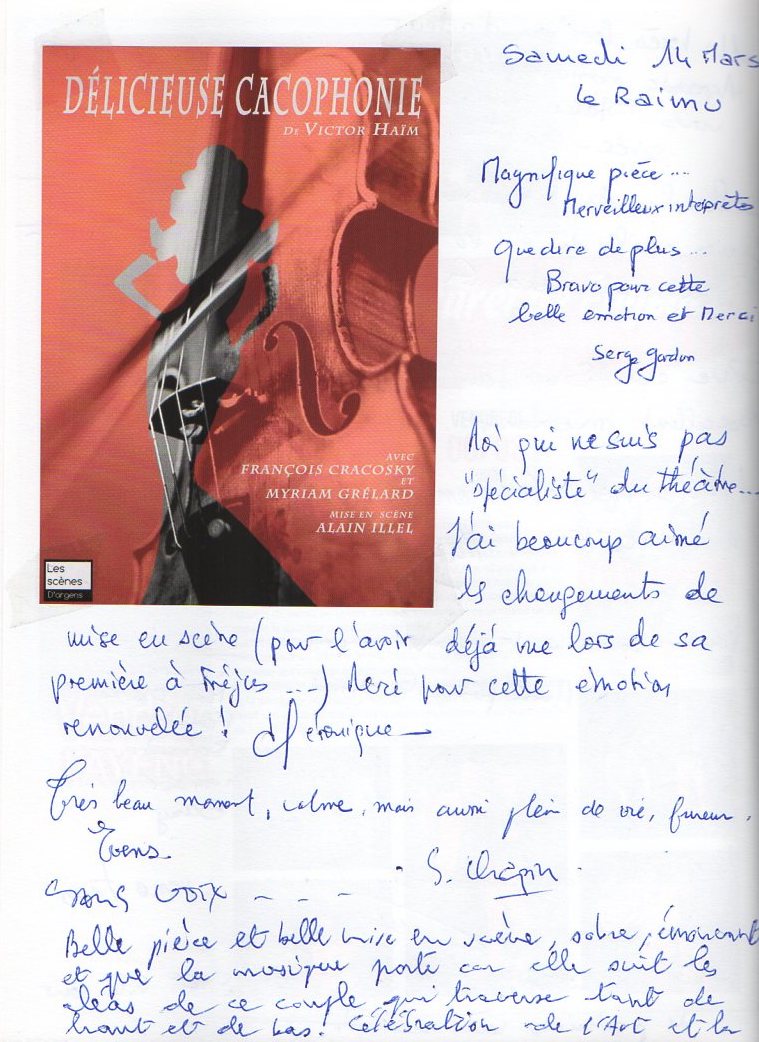 DÉLICIEUSE CACOPHONIE
DE VICTOR HAÏM
AVEC
FRANÇOIS CRACOSKY
ET
MYRIAM GRÉLARD
MISE EN SCÈNE
ALAIN ILLEL
Les
scènes
D'argens
Samedi 14 Mars
Le Raimu
Magnifique pièce ...
Merveilleux interprètes
Que dire de plus ...
Bravo pour cette
belle émotion et Merci
Serge Gordon
Moi qui ne suis pas
"spécialiste" du théâtre...
J'ai beaucoup aimé
les changements de
mise en scène (pour l'avoir déjà vue lors de sa
première à Fréjus ...) Merci pour cette émotion
renouvelée ! Véronique
Très beau moment, calme, mais aussi plein de vie, fureur.
S. Chapin
Sans voix - - -
Belle pièce et belle mise en scène, sobre, émouvant
et que la musique porte car elle suit les
aléas de ce couple qui traverse tant de
haut et de bas! Célébration de l'Art et la